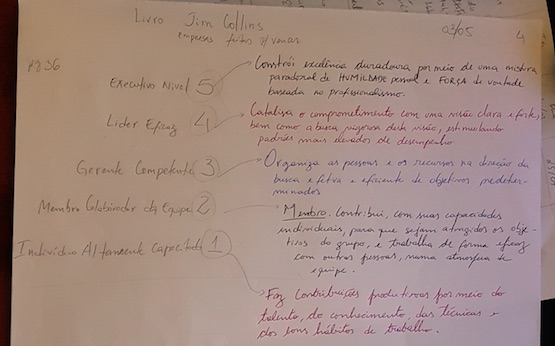 Livro Jim Collins
empresas feitas p/ vencer
03/05
4
pg 36
Executivo Nível 5
Constrói excelência duradoura por meio de uma mistura
paradoxal de HUMILDADE pessoal e FORÇA de vontade
baseada no profissionalismo.
Líder Eficaz 4
Catalisa o comprometimento com uma visão clara e forte,
bem como a busca vigorosa desta visão, estimulando
padrões mais elevados de desempenho
Gerente Competente 3
Organiza as pessoas e os recursos na direção da
busca efetiva e eficiente de objetivos predeter-
minados
Membro Colaborador da Equipe 2
Membro. Contribui, com suas capacidades
individuais, para que sejam atingidos os obje-
tivos do grupo, e trabalha de forma eficaz
com outras pessoas, numa atmosfera de
equipe.
Indivíduo Altamente Capacitado 1
Faz contribuições produtivas por meio do
talento, do conhecimento, das técnicas e
dos bons hábitos de trabalho.